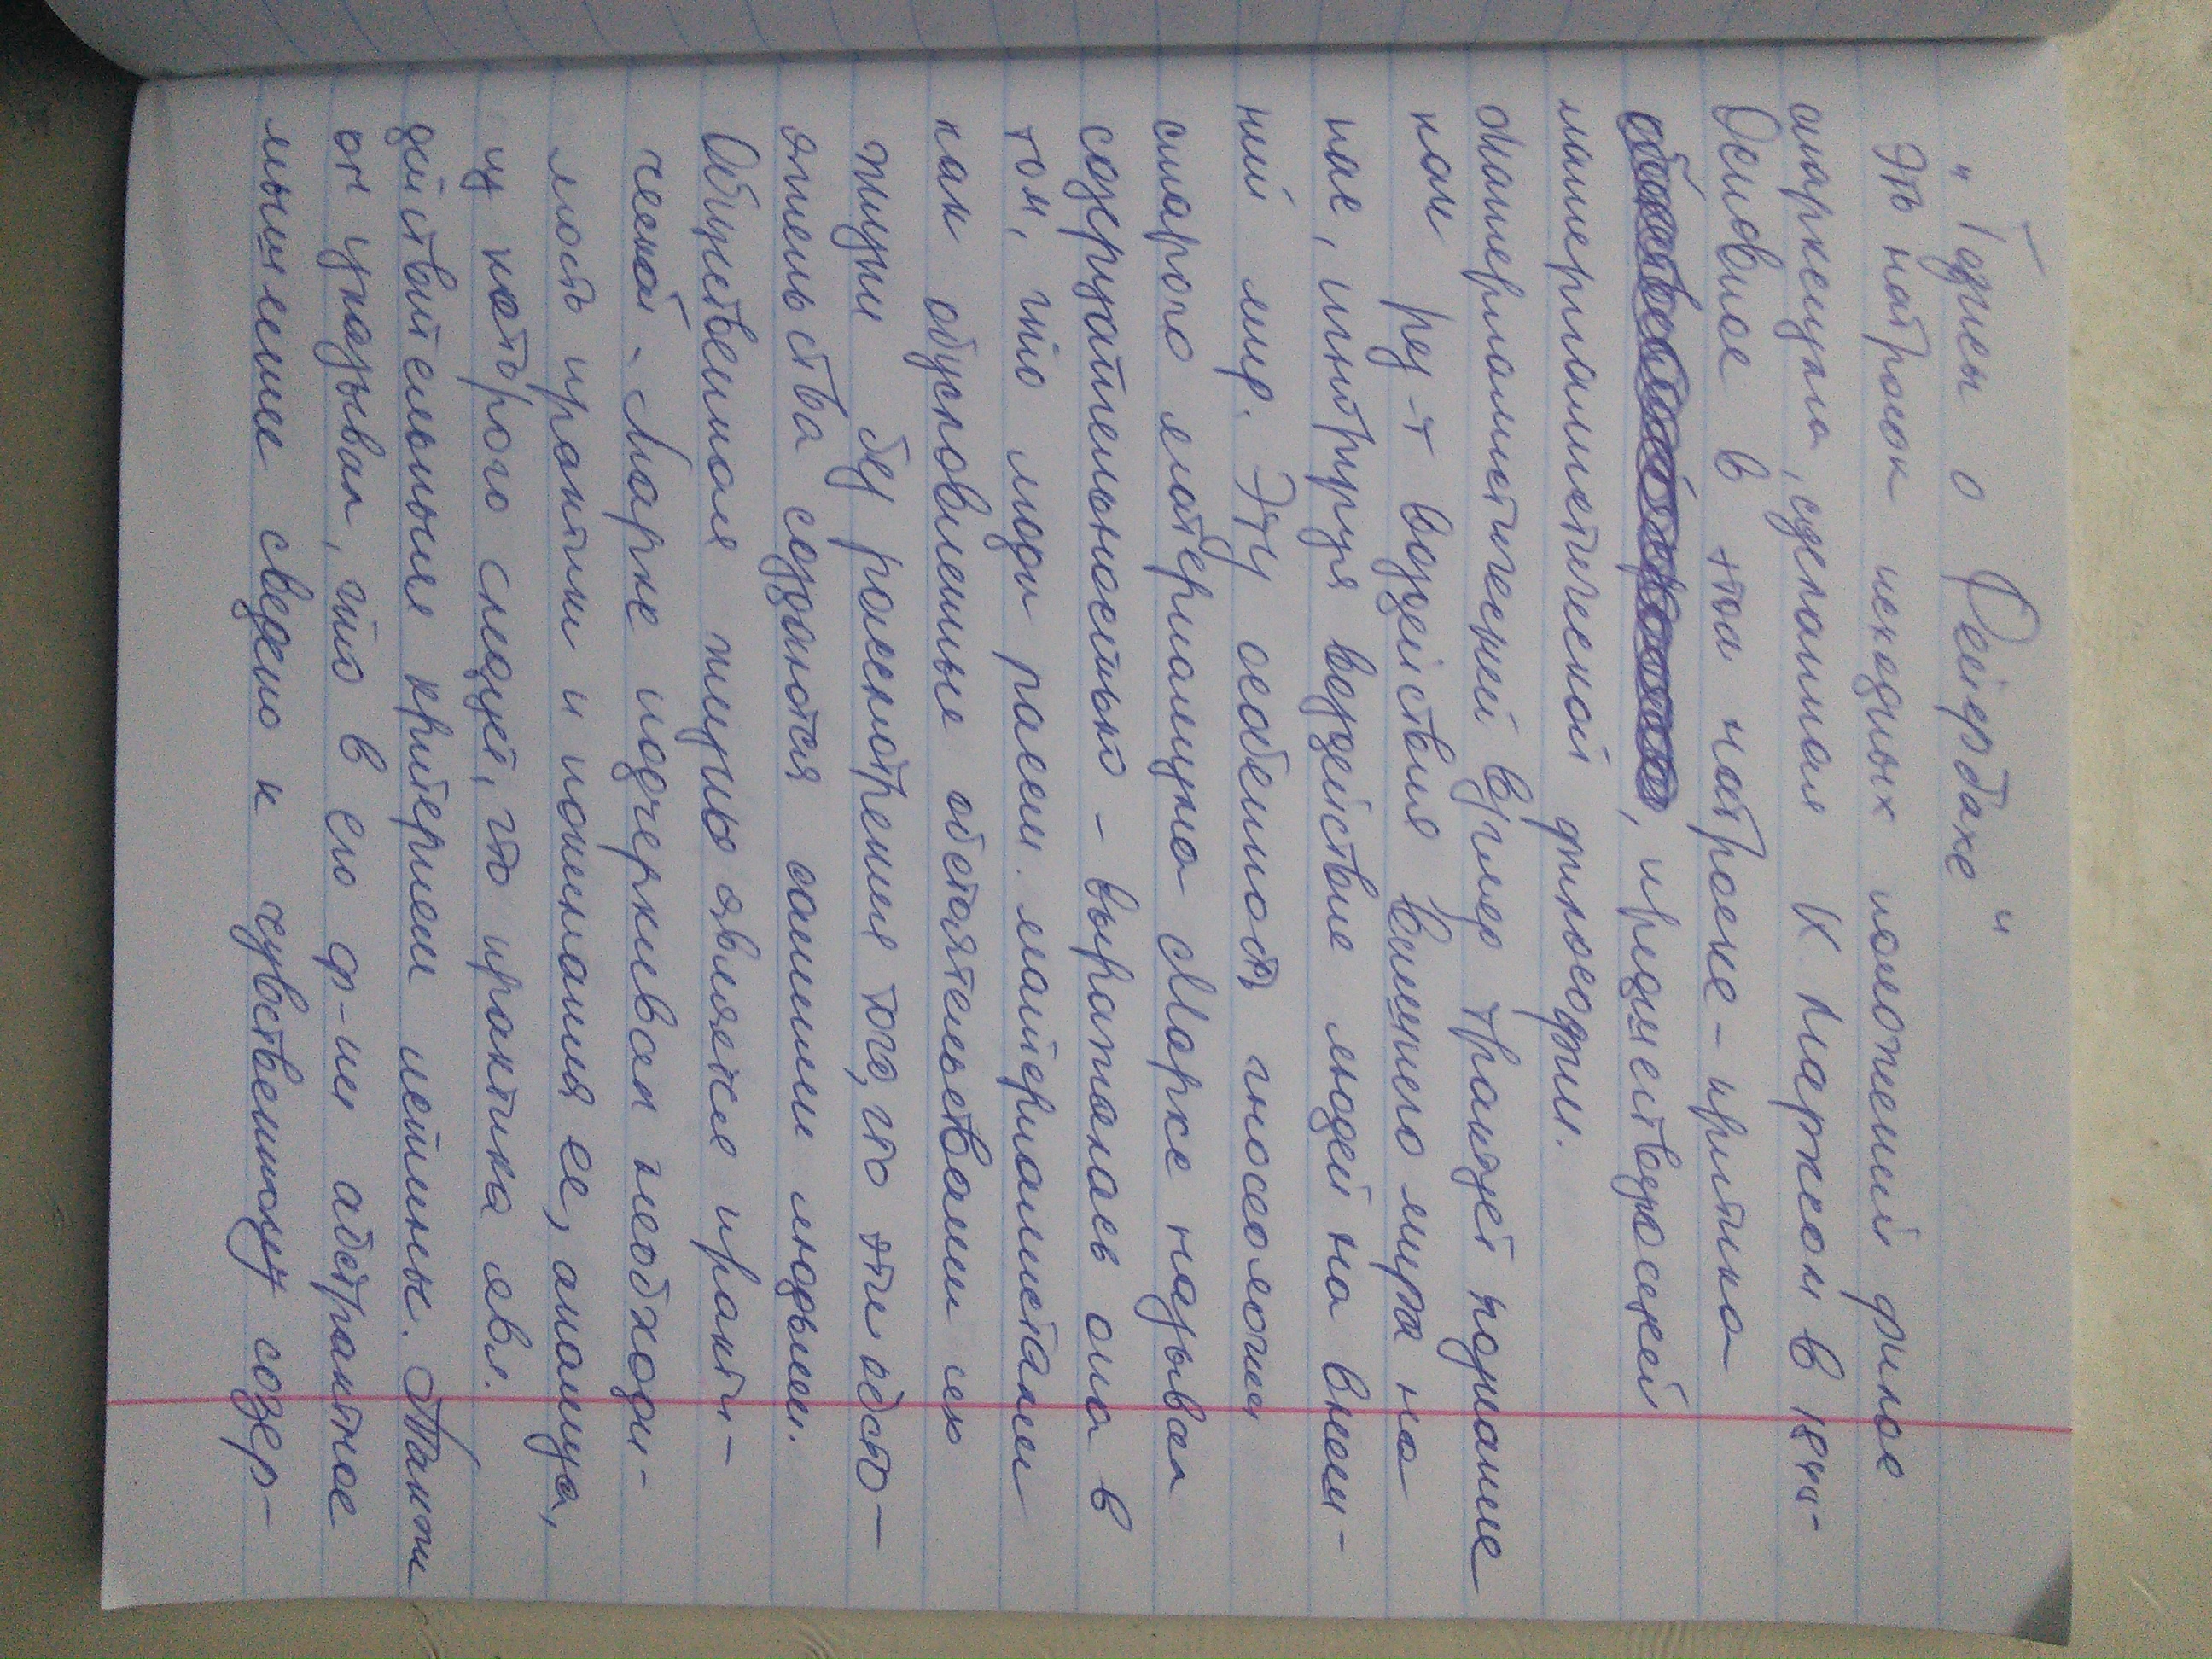 "Тезисы о Фейербахе"
Это набросок исходных положений филос.
марксизма, сделанная К. Марксом в 1844-
Основное в этом наброске - критика
, предшествующей
материалистической философии.
Материалистический взгляд трактует познание
как рез-т воздействия внешнего мира на
нас, игнорируя воздействие людей на внеш-
ний мир. Эту особенность гносеологии
старого материализма Маркс называл
созерцательностью - выражалась она в
том, что люди рассм. материалистами
как обусловленные обстоятельствами их
жизни без рассмотрения того, что эти обсто-
ятельства создаются самими людьми.
Общественная жизнь является практи-
ческой. Маркс подчеркивал необходи-
мость практики и понимания ее, анализа,
из которого следует, что практика явл.
действительным критерием истины. Также
он указывал, что в его ф-ии абстрактное
мышление сведено к чувственному созер-